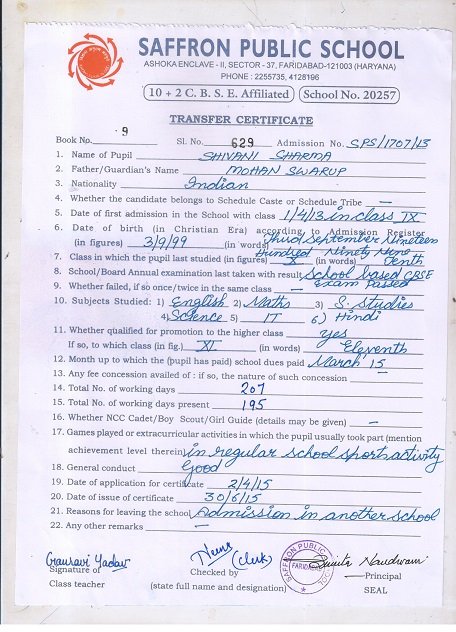 SAFFRON PUBLIC SCHOOL
ASHOKA ENCLAVE - II, SECTOR - 37, FARIDABAD-121003 (HARYANA)
PHONE : 2255735, 4128196
10 + 2 C. B. S. E. Affiliated School No. 20257
TRANSFER CERTIFICATE
Book No. 9 Sl. No. 629 Admission No. SPS/1707/13
1. Name of Pupil SHIVANI SHARMA
2. Father/Guardian's Name MOHAN SWARUP
3. Nationality Indian
4. Whether the candidate belongs to Schedule Caste or Schedule Tribe —
5. Date of first admission in the School with class 1/4/13 in class IX
6. Date of birth (in Christian Era) according to Admission Register
(in figures) 3/9/99 (in words) Third September Nineteen
Hundred Ninety Nine
7. Class in which the pupil last studied (in figures) X (in words) Tenth
8. School/Board Annual examination last taken with result School based CBSE
Exam Passed
9. Whether failed, if so once/twice in the same class —
10. Subjects Studied: 1) English 2) Maths 3) S. Studies
4) Science 5) IT 6) Hindi
11. Whether qualified for promotion to the higher class yes
If so, to which class (in fig.) XI (in words) Eleventh
12. Month up to which the (pupil has paid) school dues paid March 15
13. Any fee concession availed of : if so, the nature of such concession —
14. Total No. of working days 207
15. Total No. of working days present 195
16. Whether NCC Cadet/Boy Scout/Girl Guide (details may be given) —
17. Games played or extracurricular activities in which the pupil usually took part (mention
achievement level therein) in regular school sports activity
18. General conduct Good
19. Date of application for certificate 2/4/15
20. Date of issue of certificate 30/6/15
21. Reasons for leaving the school Admission in another school
22. Any other remarks —
Gauravi Yadav (Clerk)
Signature of Checked by Principal
Class teacher (state full name and designation) SEAL
SAFFRON PUBLIC
FARIDABAD